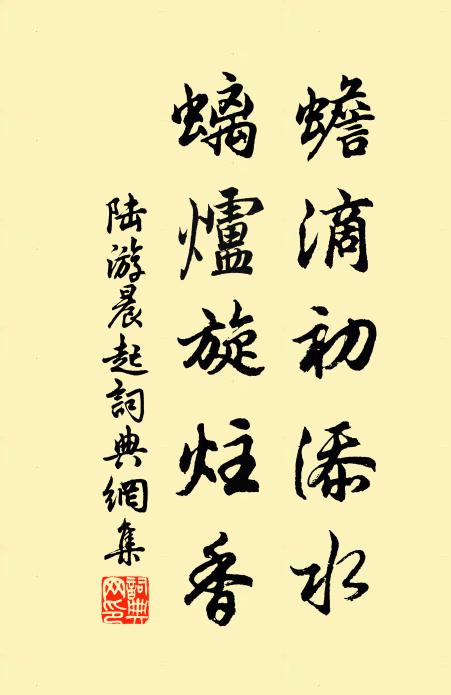 蟾滴初添水
螭爐旋炷香
陆游晨起詞典網集
詞典網印